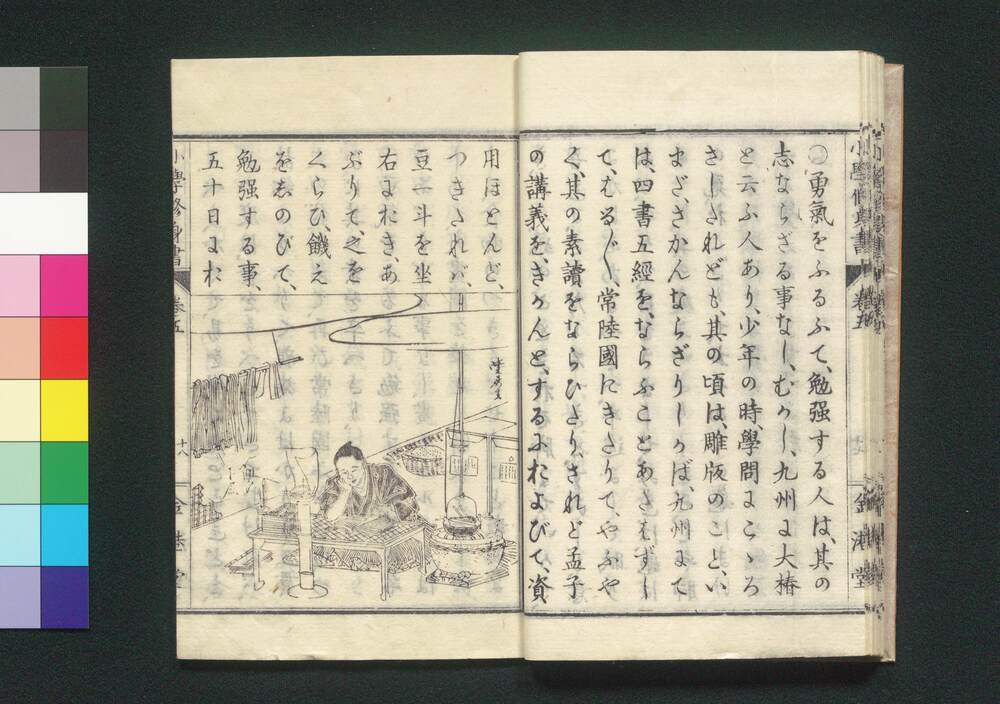 ○勇氣をふるふて、勉强する人は、其の
志ならざる事なし、むかし、九州に大椿
と云ふ人あり、少年の時、學問にこゝろ
ざしゝれども、其の頃は、雕版のこと、い
まだ、さかんならざりしかば、九州にて
は、四書五經を、ならふことあたはずし
て、はる〴〵、常陸國にきたりて、やうや
く、其の素讀をならひたり、されど孟子
の講義を、きかんと、するにおよびて、資
用ほとんど、
つきたれバ、
豆一斗を坐
右におき、あ
ぶりて、之を
くらひ、饑え
をしのびて、
勉强する事、
五十日にお
小學修身書
卷五
十八
金港堂